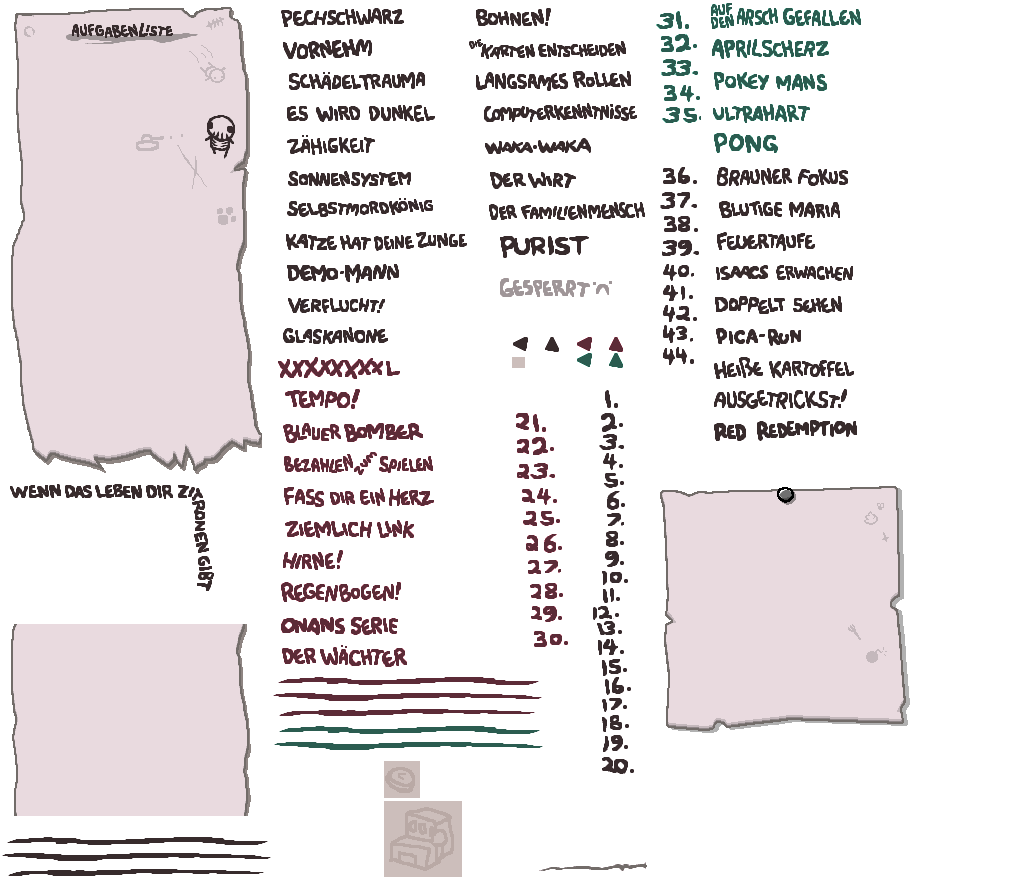 AUFGABENLISTE
PECHSCHWARZ
VORNEHM
SCHÄDELTRAUMA
ES WIRD DUNKEL
ZÄHIGKEIT
SONNENSYSTEM
SELBSTMORDKÖNIG
KATZE HAT DEINE ZUNGE
DEMO-MANN
VERFLUCHT!
GLASKANONE
XXXXXXXXL
TEMPO!
BLAUER BOMBER
BEZAHLEN ZUM SPIELEN
FASS DIR EIN HERZ
ZIEMLICH LINK
HIRNE!
REGENBOGEN!
ONANS SERIE
DER WÄCHTER
BOHNEN!
DIE KARTEN ENTSCHEIDEN
LANGSAMES ROLLEN
COMPUTERKENNTNISSE
WAKA-WAKA
DER WIRT
DER FAMILIENMENSCH
PURIST
GESPERRT :'(
21.
22.
23.
24.
25.
26.
27.
28.
29.
30.
1.
2.
3.
4.
5.
6.
7.
8.
9.
10.
11.
12.
13.
14.
15.
16.
17.
18.
19.
20.
31.
32.
33.
34.
35.
36.
37.
38.
39.
40.
41.
42.
43.
44.
AUF DEN ARSCH GEFALLEN
APRILSCHERZ
POKEY MANS
ULTRAHART
PONG
BRAUNER FOKUS
BLUTIGE MARIA
FEUERTAUFE
ISAACS ERWACHEN
DOPPELT SEHEN
PICA-RUN
HEIßE KARTOFFEL
AUSGETRICKST!
RED REDEMPTION
WENN DAS LEBEN DIR ZITRONEN GIBT